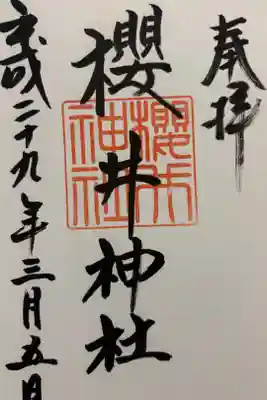 奉拝
櫻井神社
櫻井神社
平成二十九年三月五日